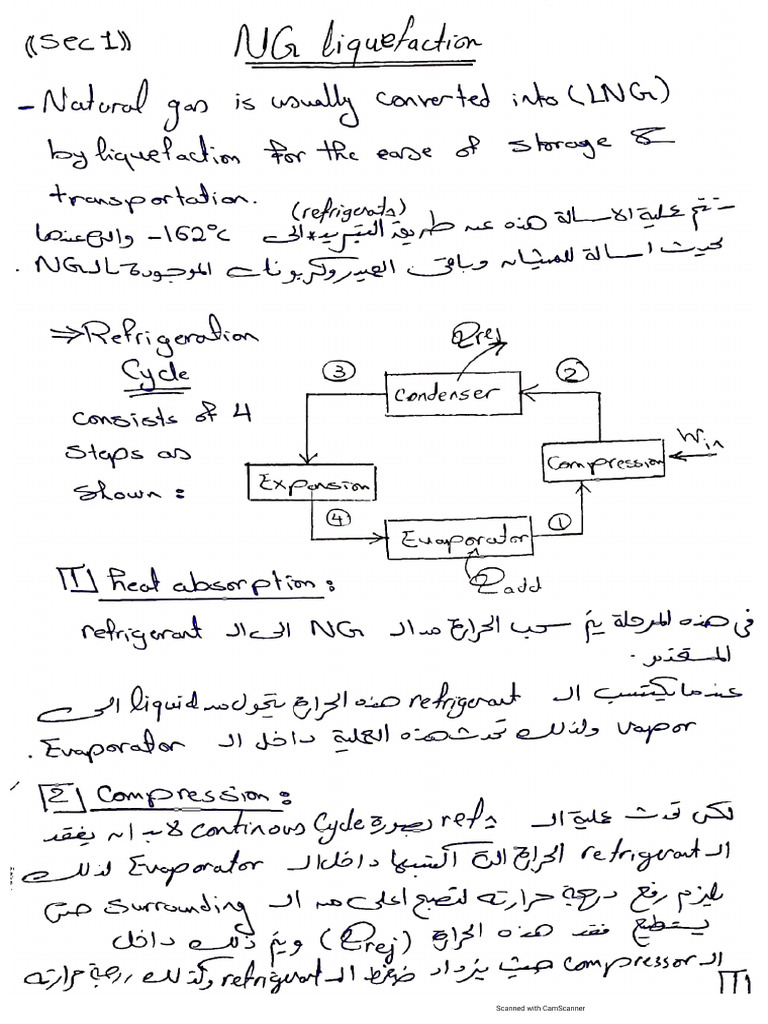 ((Sec 1)) NG liquefaction
- Natural gas is usually converted into (LNG)
by liquefaction for the ease of storage &
transportation.
- تتم عملية الاسالة هذه عن طريق التبريد (refrigerate) الى -162°C والتى عندها
يحدث اسالة للميثان وباقى الهيدروكربونات الموجودة بالـ NG.
⇒ Refrigeration
Cycle
consists of 4
steps as
shown:
Qrej
③
Condenser
②
Win
Compression
Expansion
④
Evaporator
①
Qadd
[1] heat absorption:
فى هذه المرحلة يتم سحب الحرارة من الـ NG الى الـ refrigerant
المستخدم.
عندما يكتسب الـ refrigerant هذه الحرارة يتحول من liquid الى
vapor ولذلك تحدث هذه العملية داخل الـ Evaporator.
[2] Compression:
لكى تحدث عملية الـ ref. بصورة continous Cycle لابد ان يفقد
الـ refrigerant الحرارة التى اكتسبها داخل الـ Evaporator لذلك
يلزم رفع درجة حرارته لتصبح اعلى من الـ surrounding حتى
يستطيع فقد هذه الحرارة (Qrej) ويتم ذلك داخل
الـ compressor حيث يزداد ضغط الـ refrigerant وكذلك درجة حرارته
[1]
Scanned with CamScanner